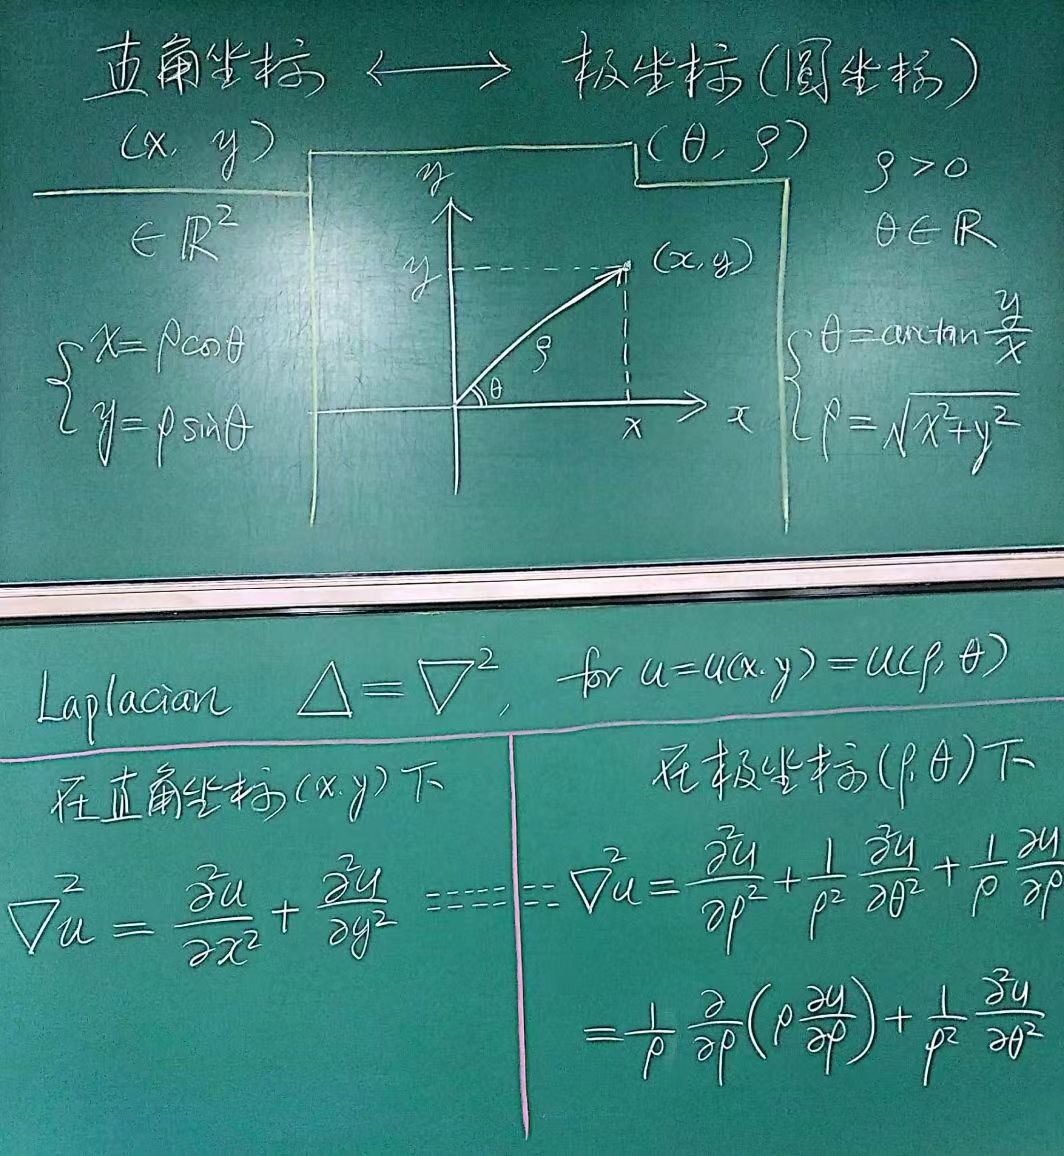 直角坐标 ⟷ 极坐标(圆坐标)
(x, y) (θ, ρ) ρ>0
∈ ℝ² θ∈ℝ
y
y (x,y)
{ x=ρcosθ
y=ρsinθ
ρ θ
x x
{ θ=arctan y/x
ρ=√(x²+y²)
Laplacian △=▽², for u=u(x.y)=u(ρ,θ)
在直角坐标(x.y)下
▽²u = ∂²u/∂x² + ∂²u/∂y²
在极坐标(ρ,θ)下
▽²u = ∂²u/∂ρ² + 1/ρ² ∂²u/∂θ² + 1/ρ ∂u/∂ρ
= 1/ρ ∂/∂ρ(ρ ∂u/∂ρ) + 1/ρ² ∂²u/∂θ²